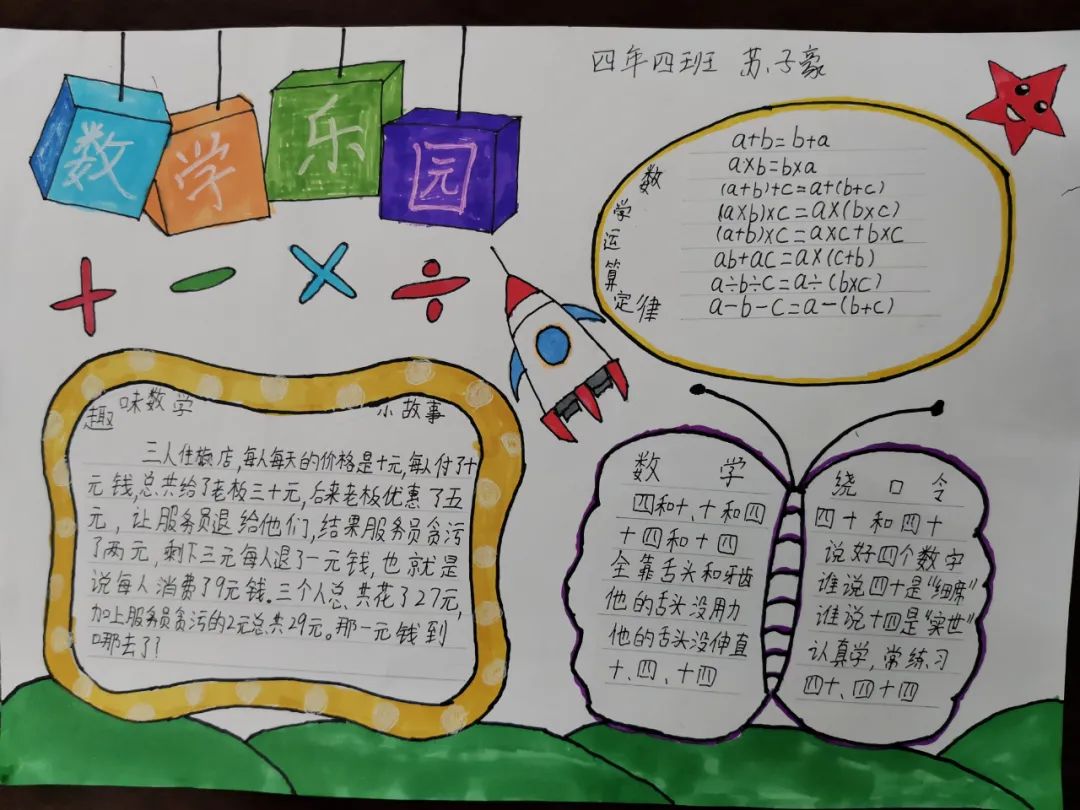 数学乐园
四年四班 苏子豪
+ - × ÷
数学运算定律
a+b=b+a
a×b=b×a
(a+b)+c=a+(b+c)
(a×b)×c=a×(b×c)
(a+b)×c=a×c+b×c
ab+ac=a×(c+b)
a÷b÷c=a÷(b×c)
a-b-c=a-(b+c)
趣味数学 小故事
三人住旅店,每人每天的价格是十元,每人付了十
元钱,总共给了老板三十元,后来老板优惠了五
元,让服务员退给他们,结果服务员贪污
了两元,剩下三元每人退了一元钱,也就是
说每人消费了9元钱。三个人总共花了27元,
加上服务员贪污的2元总共29元。那一元钱到
哪去了!
数学
四和十、十和四
十四和十四
全靠舌头和牙齿
他的舌头没用力
他的舌头没伸直
十、四、十四
绕口令
四十和四十
说好四个数字
谁说四十是“细席”
谁说十四是“实世”
认真学,常练习
四十、四十四